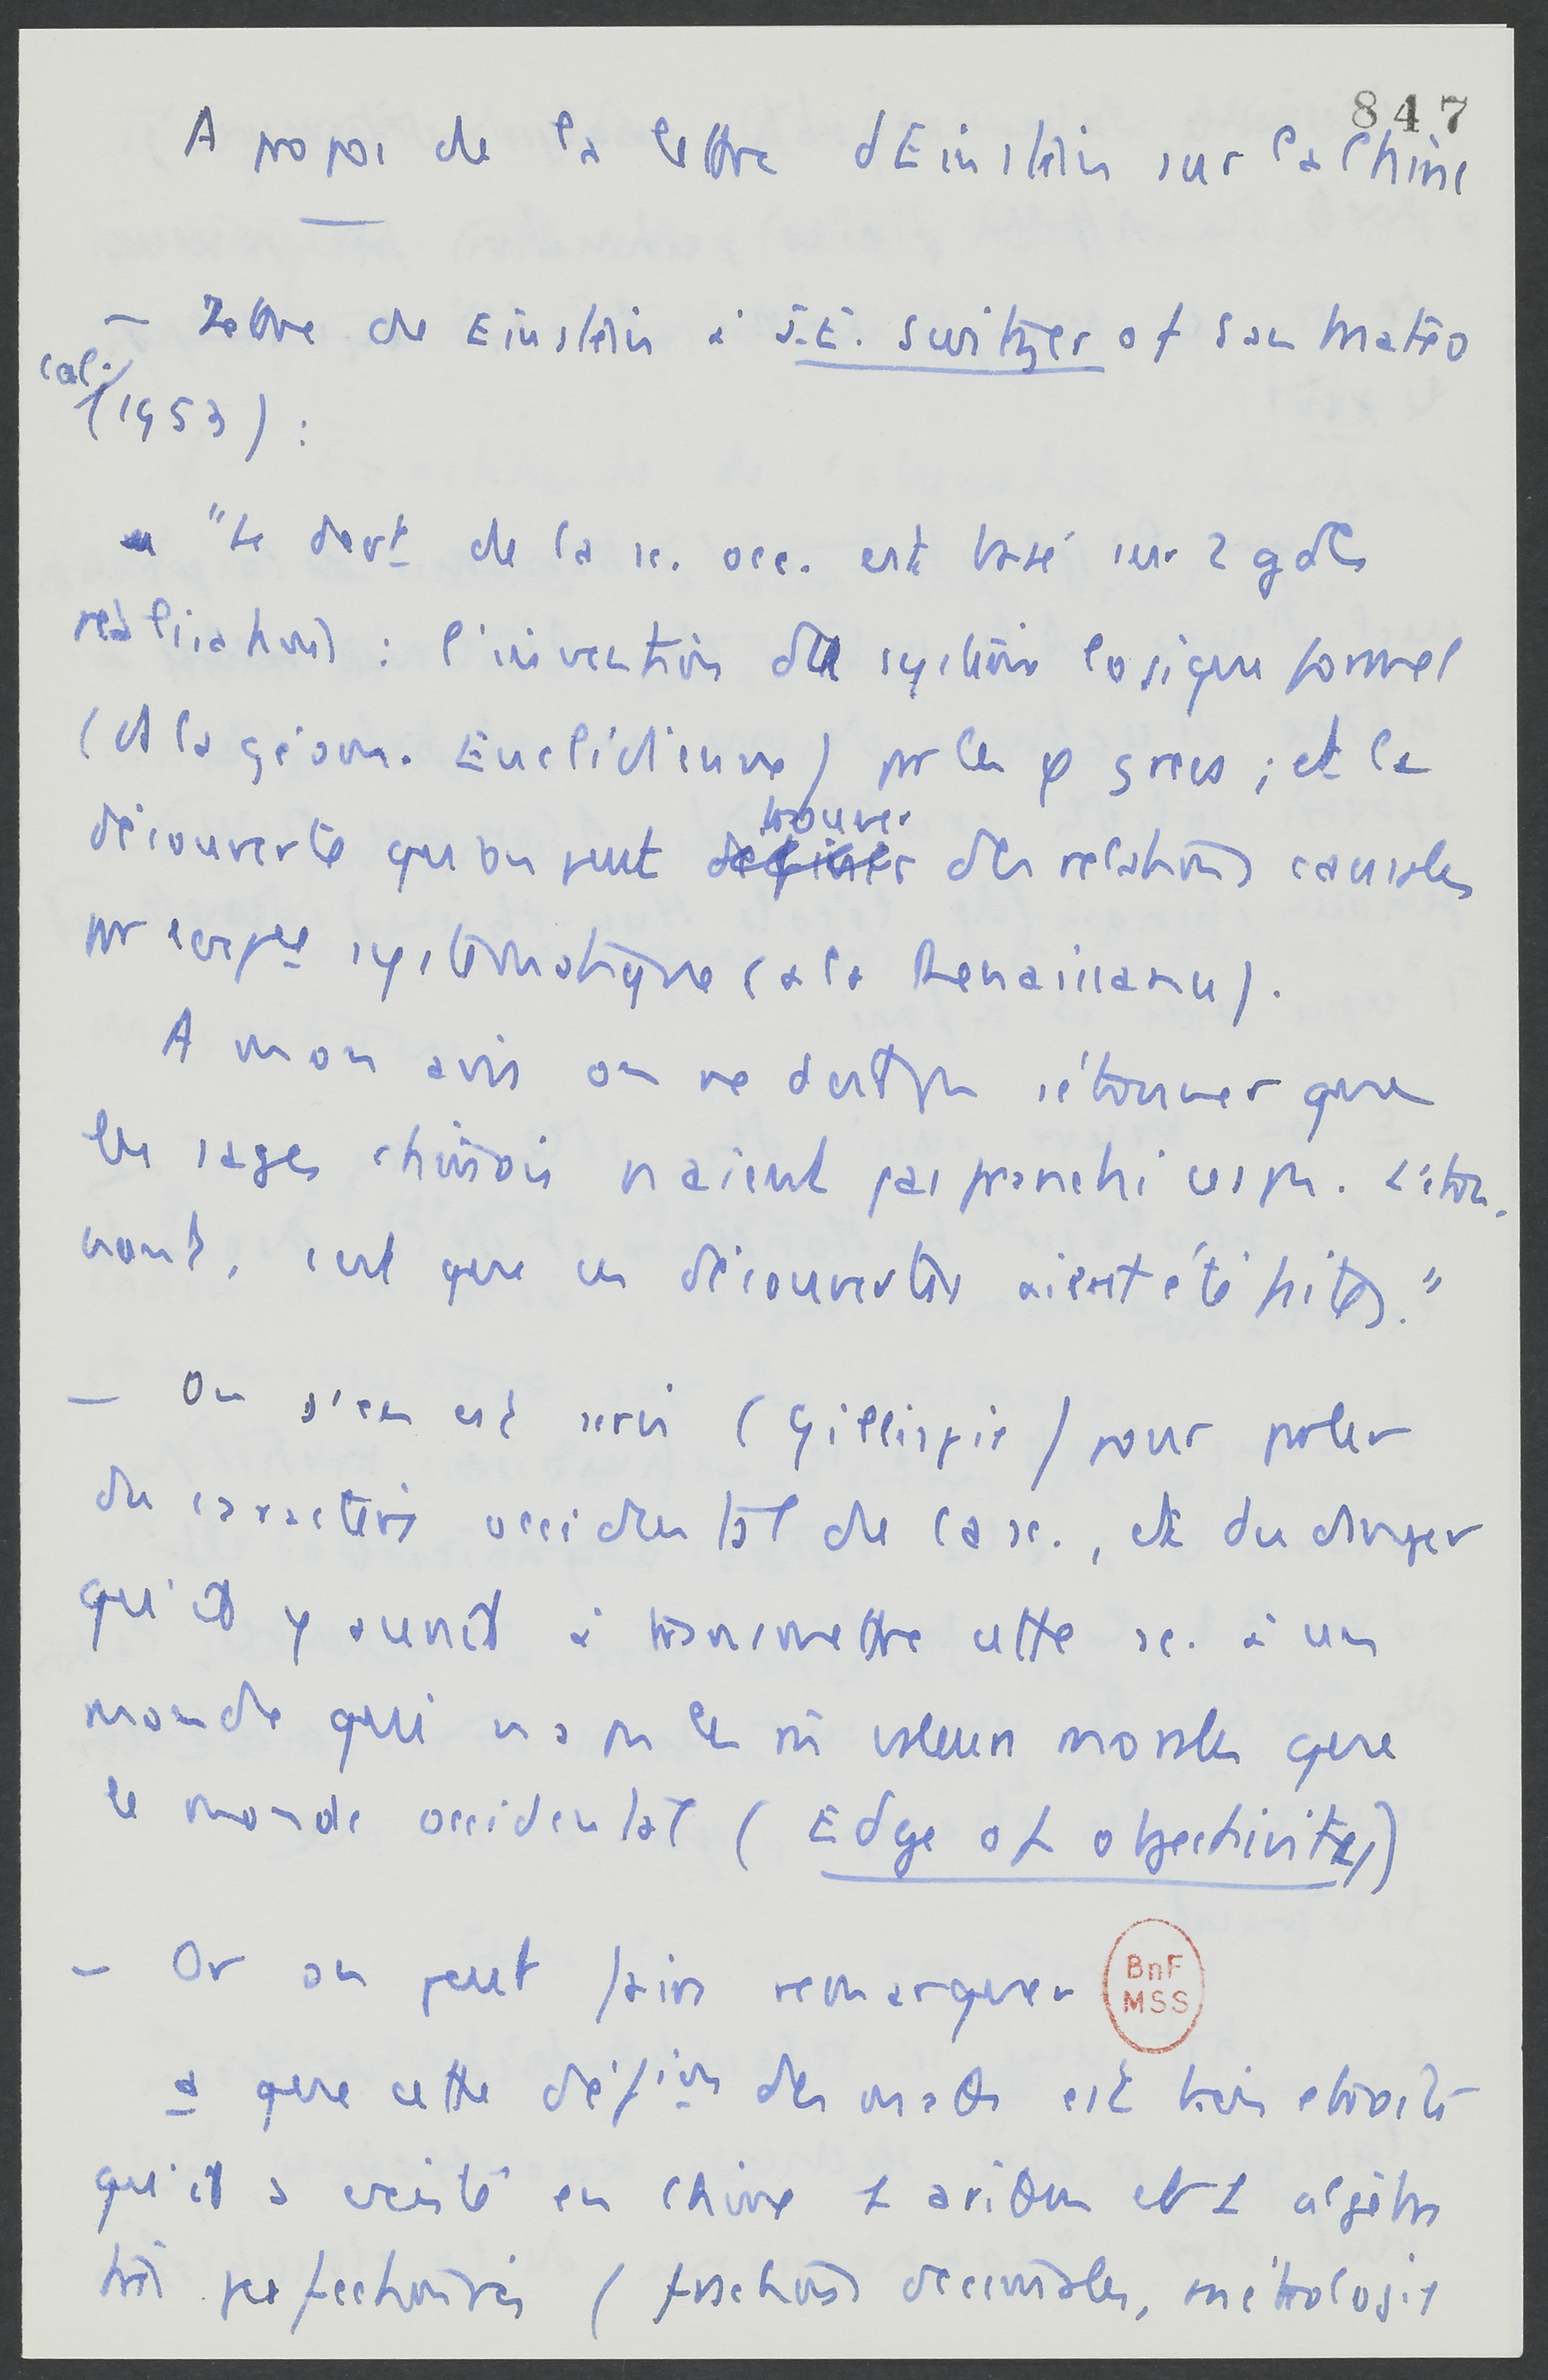 847
A propos de la lettre d'Einstein sur la Chine
– Lettre de Einstein à J.E. Switzer of San Mateo
Cal.
(1953) :
"Le devt de la sc. occ. est basé sur 2 gdes
réalisations : l'invention du système logique formel
(ds la géom. Euclidienne) par les φ grecs ; et la
découverte qu'on peut definir trouver des relations causales
par expce systématique (à la Renaissance).
A mon avis on ne doit pas s'étonner que
les sages chinois n'aient pas franchi ces pas. L'éton-
nant, c'est que ces découvertes aient été faites."
– On s'en est servi (Gillispie) pour parler
du caractère occidental de la sc., et du danger
qu'il y aurait à transmettre cette sc. à un
monde qui n'a pas les m̂ valeurs morales que
le monde occidental (Edge of objectivity)
– Or on peut faire remarquer
BnF
MSS
a que cette défion des maths est très étroite
qu'il a existé en Chine 1 arithm et 1 algèbre
très perfectionnées (fractions décimales, métrologie